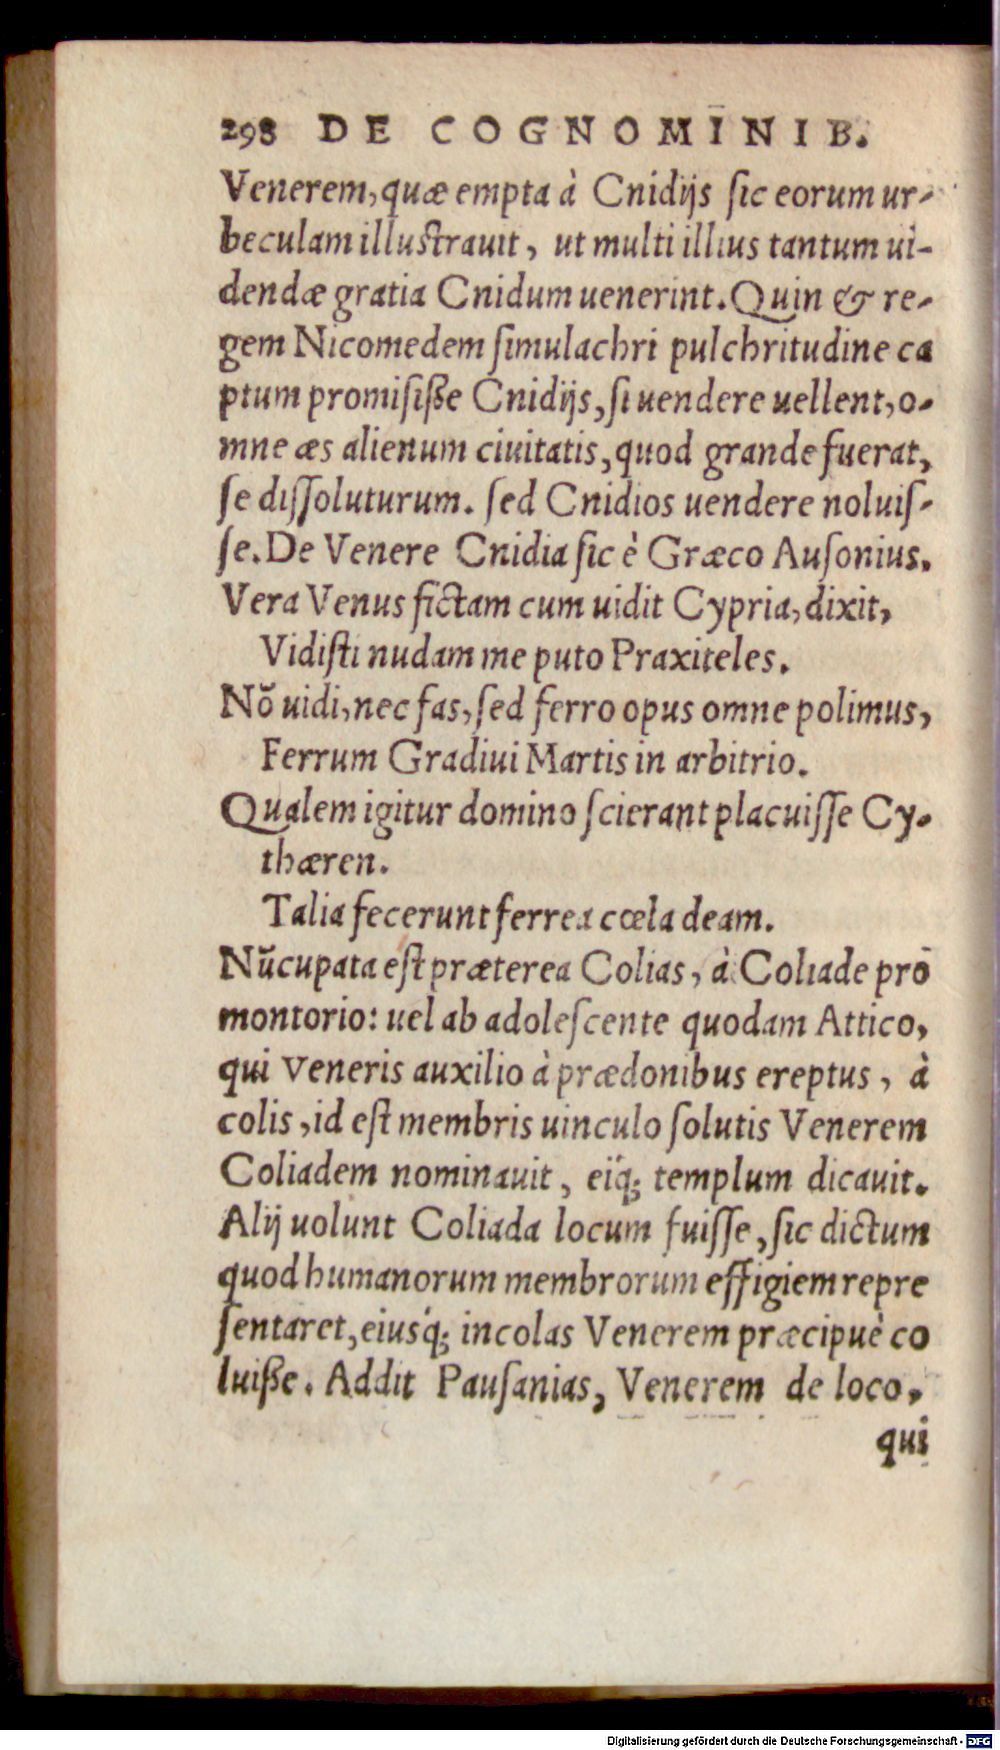 298 DE COGNOMINIB.
Venerem, quæ empta à Cnidijs ſic eorum ur-
beculam illuſtrauit, ut multi illius tantum ui-
dendæ gratia Cnidum uenerint. Quin & re-
gem Nicomedem ſimulachri pulchritudine ca
ptum promiſiſſe Cnidijs, ſi uendere uellent, o-
mne æs alienum ciuitatis, quod grande fuerat,
ſe diſſoluturum. ſed Cnidios uendere noluiſ-
ſe. De Venere Cnidia ſic è Græco Auſonius.
Vera Venus fictam cum uidit Cypria, dixit,
Vidiſti nudam me puto Praxiteles.
Nō uidi, nec fas, ſed ferro opus omne polimus,
Ferrum Gradiui Martis in arbitrio.
Qualem igitur domino ſcierant placuiſſe Cy-
thæren.
Talia fecerunt ferrea cœla deam.
Nūcupata eſt præterea Colias, à Coliade prō
montorio: uel ab adoleſcente quodam Attico,
qui Veneris auxilio à prædonibus ereptus, à
colis, id eſt membris uinculo ſolutis Venerem
Coliadem nominauit, eiq́; templum dicauit.
Alij uolunt Coliada locum fuiſſe, ſic dictum
quod humanorum membrorum effigiem repre
ſentaret, eiusq́; incolas Venerem præcipuè co
luiſſe. Addit Pauſanias, Venerem de loco,
qui
Digitalisierung gefördert durch die Deutsche Forschungsgemeinschaft - DFG